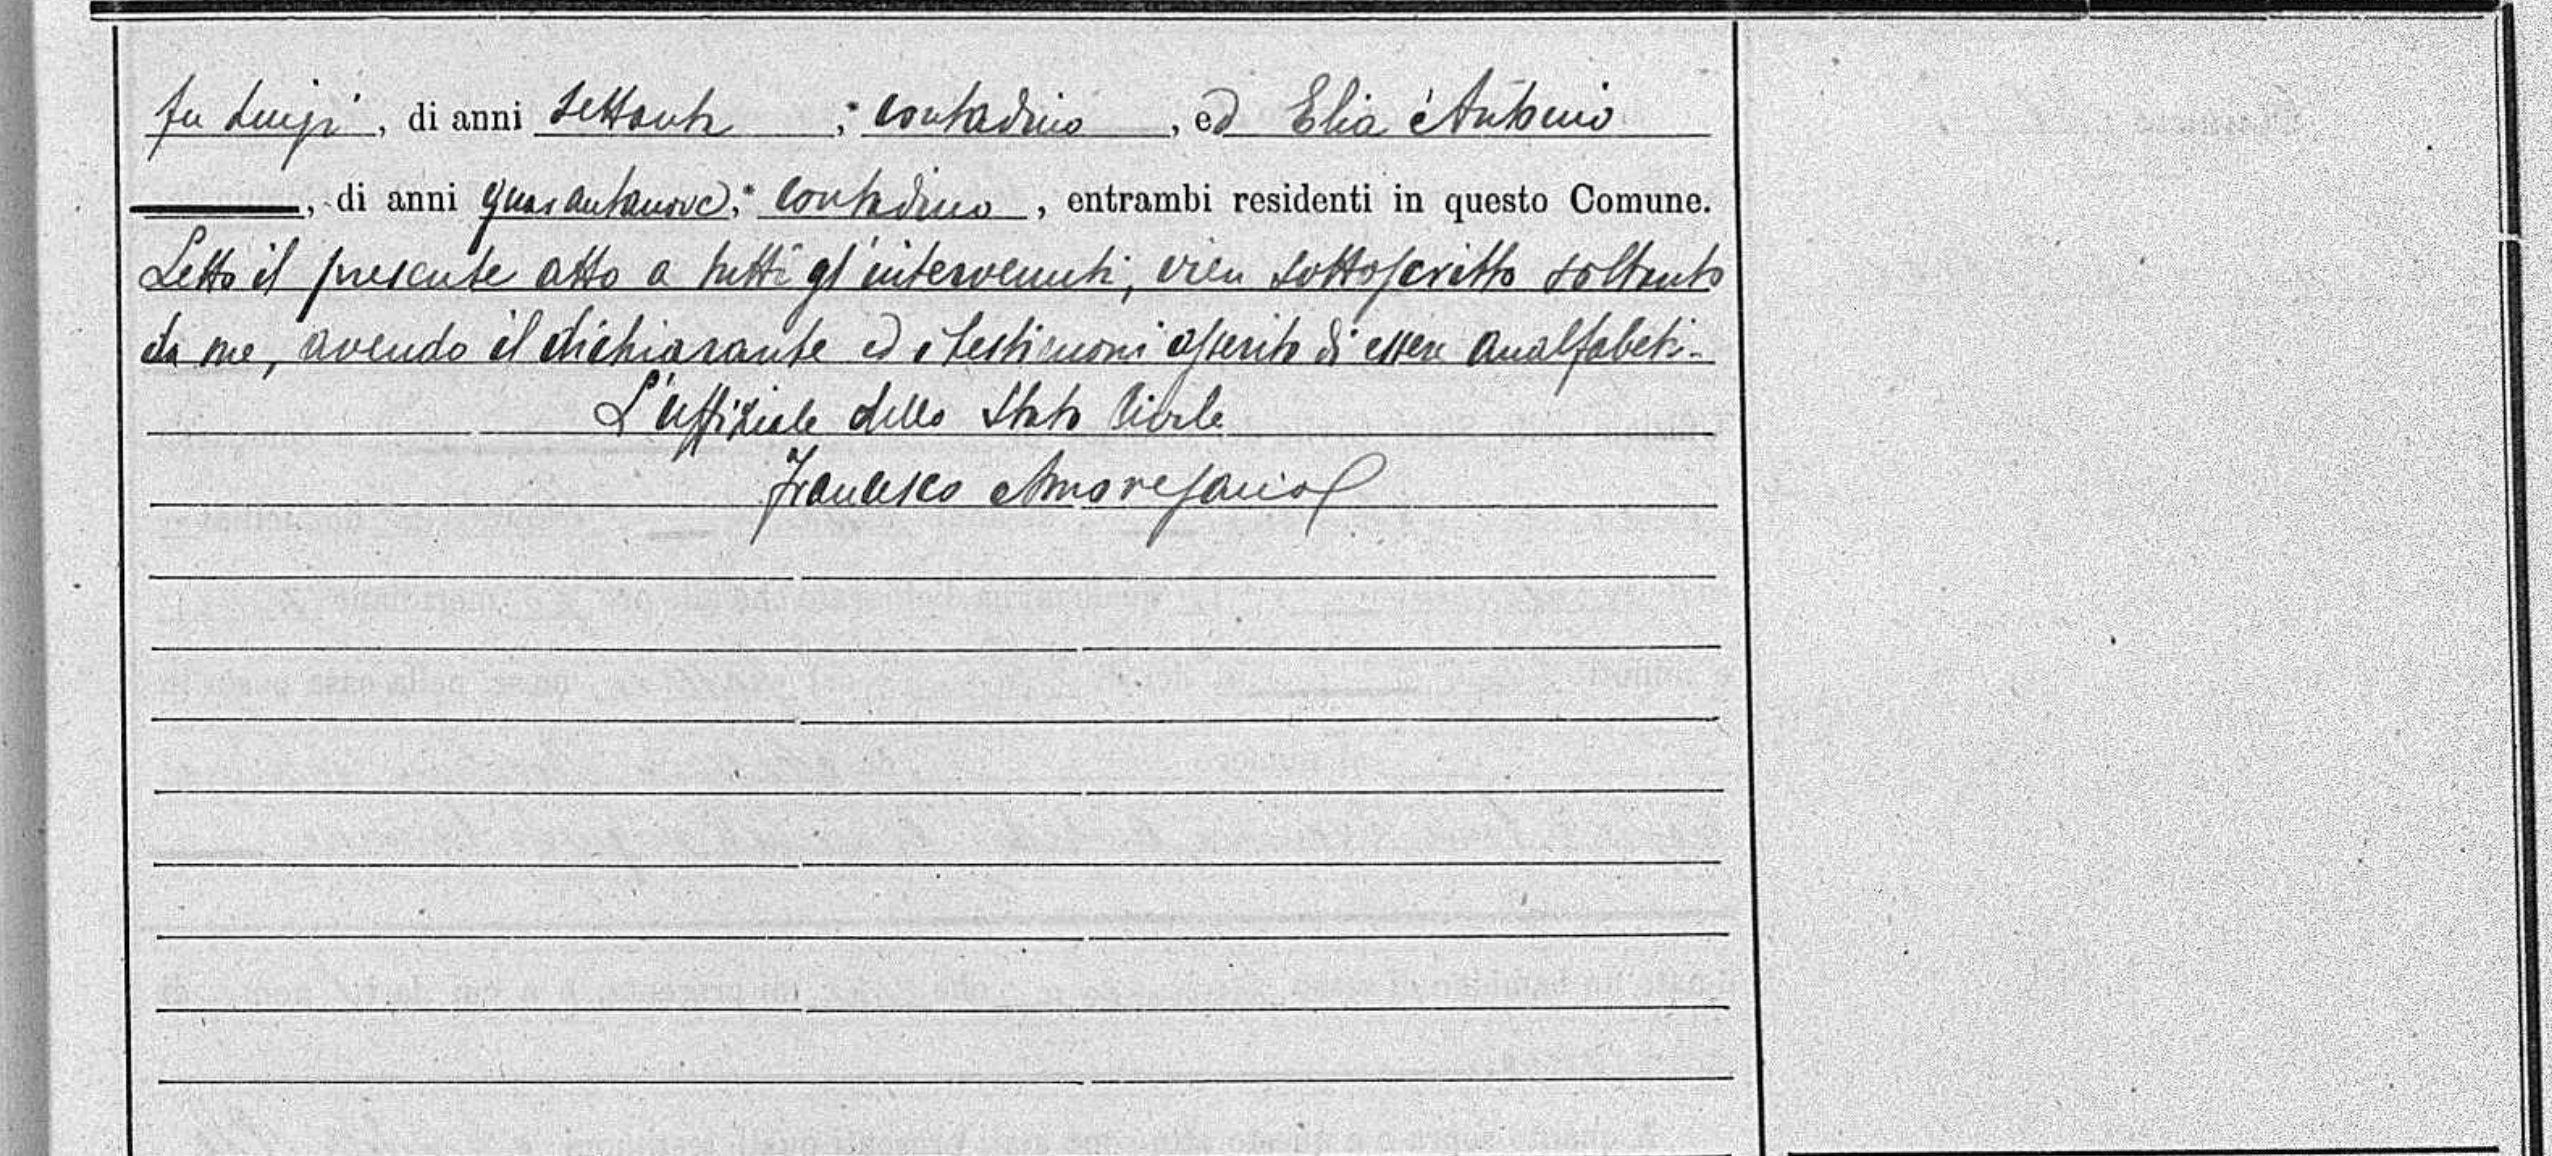 fu Luigi, di anni settanta, contadino, ed Elia Antonio
, di anni quarantanove, contadino, entrambi residenti in questo Comune.
Letto il presente atto a tutti gl'intervenuti, vien sottoscritto soltanto
da me, avendo il dichiarante ed i testimoni asserito di essere analfabeti.
L'uffiziale dello Stato Civile
Francesco Amoresano